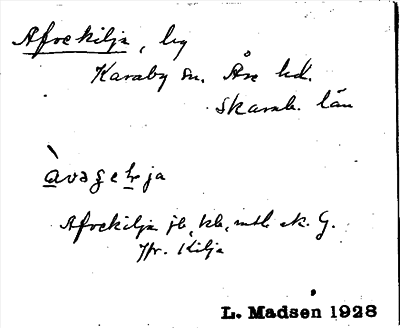 Afvekilja, by
Karaby sn. Åse hd.
Skarab. län
àvaʒeɦja
Afvekilja jb, kb, mtl ek. G.
Jfr. Kilja
L. Madsen 1928